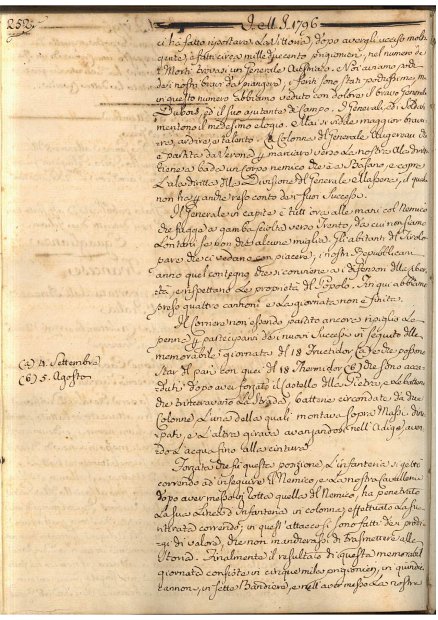 252.
Dell' A. 1796
ci hà fatto riportare la Vittoria, dopo avergli ucciso molta
gente, e fatti circa mille ducento prigionieri, nel numero de
Morti trovasi un Generale Austriaco. Noi abbiamo
de' nostri bravi da piangere, i feriti sono stati pochissimi, ma
in questo numero abbiamo veduto con dolore il bravo Generale
Dubois, ed il suo ajutante di Campo. I Generali, ed i Soldati
meritono il medesimo elogio. Mai si vidde maggior bravu
ra, ardire, e talento. La Colonna del Generale Augereau che
è partita da Verona per marciare verso la nostra Ala dritta
tiene a bada un corpo nemico che è a Bassano, e copre
l'ala dritta della Divisione del Generale Massena, il quale
non ha per anche reso conto de suoi Successi.
Il Generale in capite è tutt' ora alle mani col Nemico
che fugge a gambe sciolte verso Trento, da cui non siamo
Lontani se non che alcune miglia. Gli abitanti del Tirolo
pare che ci vedano con piacere, i nostri Republicani
anno quel contegno che si conviene a' difensori della liber
tà, e rispettano le proprietà del Popolo. Fin qui abbiamo
preso quattro cannoni, e la giornata non è finita.
Il Corriere non essendo partito ancora ripiglio la
penna per parteciparvi de' nuovi Successi in seguito della
memorabile giornata del 18 Fructidor (a) che può possono
star del pari con quei del 18 Thermidor (b) che sono acca
duti; dopo aver forzato il Castello della Pietra, e le batterie
che trincieravano la Strada, battone circondate da due
Colonne, l'una della quali montava sopra Massi diru
pati, e l'altra girava avanzandosi nell' Adige, aven
do l'acqua fino alla cintura.
(a) 4. Settembre
(b) 5. Agosto
Forzata che fù questa posizione, l'infanteria si gettò
correndo ad inseguire il Nemico, e la nostra Cavalleria
dopo aver messo in rotta quella del Nemico, ha penetrato
la sua Linea d' infanteria in colonna, effettuata la sua
ritirata correndo; in quest' attacco si sono fatti de' prodi
gi di valore, che non mancherassi di trasmettere alla
Storia. Finalmente il resultato di questa memorabil
giornata consiste in cinque mila prigionieri, in quindici
cannoni, in sette Bandiere, e nell' aver messo la nostra